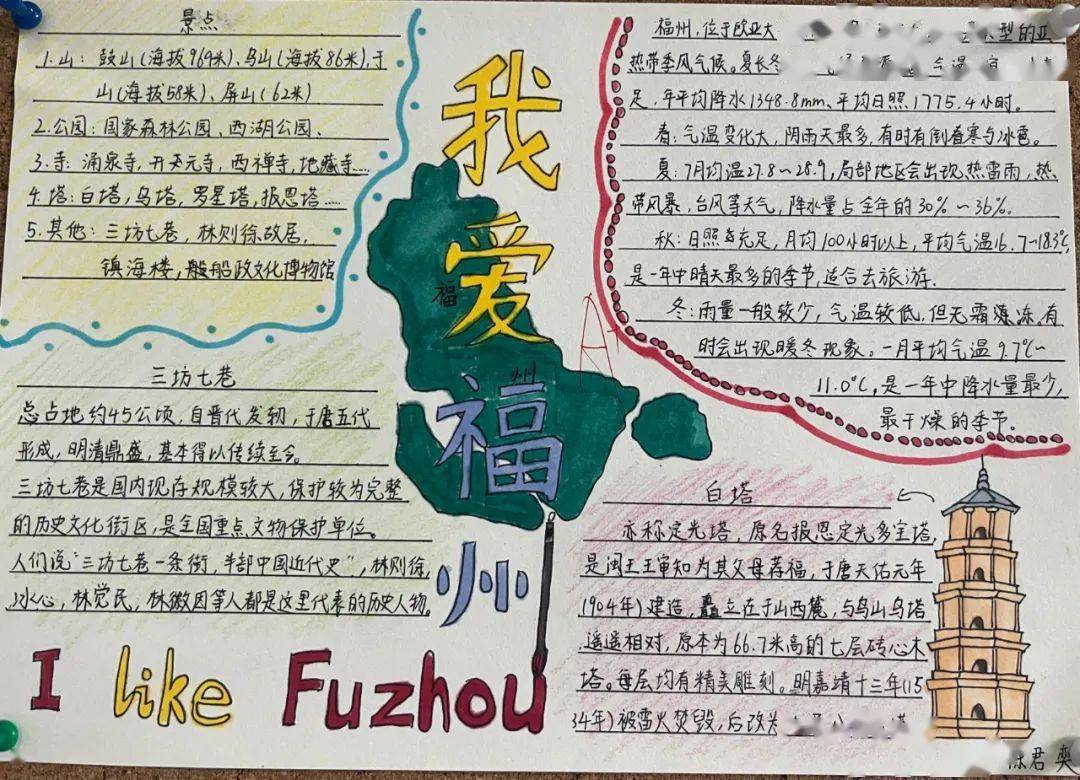 景点
1.山：鼓山(海拔969米)、乌山(海拔86米)、于
山(海拔58米)、屏山(62米)
2.公园：国家森林公园、西湖公园、
3.寺：涌泉寺，开元寺，西禅寺，地藏寺……
4.塔：白塔，乌塔，罗星塔，报恩塔……
5.其他：三坊七巷，林则徐故居，
镇海楼，船政文化博物馆
三坊七巷
总占地约45公顷，自晋代发轫，于唐五代
形成，明清鼎盛，基本得以传续至今。
三坊七巷是国内现存规模较大，保护较为完整
的历史文化街区，是全国重点文物保护单位。
人们说“三坊七巷一条街，半部中国近代史”，林则徐，
冰心，林觉民，林徽因等人都是这里代表的历史人物。
我爱福州
福
州
A+
I like Fuzhou
福州，位于欧亚大 型的亚
热带季风气候。夏长冬 气温
足，年平均降水1348.8mm、平均日照1775.4小时。
春：气温变化大，阴雨天最多，有时有倒春寒与冰雹。
夏：7月均温27.8~28.9，局部地区会出现热雷雨，热
带风暴，台风等天气，降水量占全年的30%~36%。
秋：日照充足，月均100小时以上，平均气温16.7~18.3℃，
是一年中晴天最多的季节，适合去旅游.
冬：雨量一般较少，气温较低，但无霜藻冻，有
时会出现暖冬现象。一月平均气温9.7℃~
11.0℃，是一年中降水量最少，
最干燥的季节。
白塔
亦称定光塔，原名报恩定光多宝塔，
是闽王王审知为其父母荐福，于唐天佑元年
(904年)建造，矗立在于山西麓，与乌山乌塔
遥遥相对，原本为66.7米高的七层砖心木
塔。每层均有精美雕刻。明嘉靖十三年(15
34年)被雷火焚毁，后改为
陈君奕